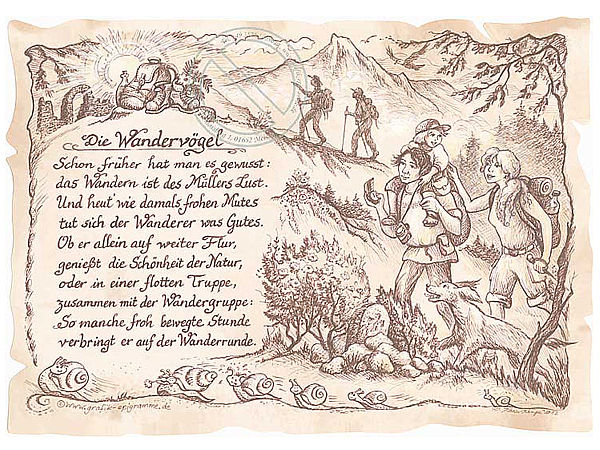 Die Wandervögel
Schon früher hat man es gewusst:
das Wandern ist des Müllers Lust.
Und heut' wie damals frohen Mutes
tut sich der Wanderer was Gutes.
Ob er allein auf weiter Flur,
genießt die Schönheit der Natur,
oder in einer flotten Truppe,
zusammen mit der Wandergruppe:
So manche froh bewegte Stunde
verbringt er auf der Wanderrunde.
©www.grafik-epigramme.de